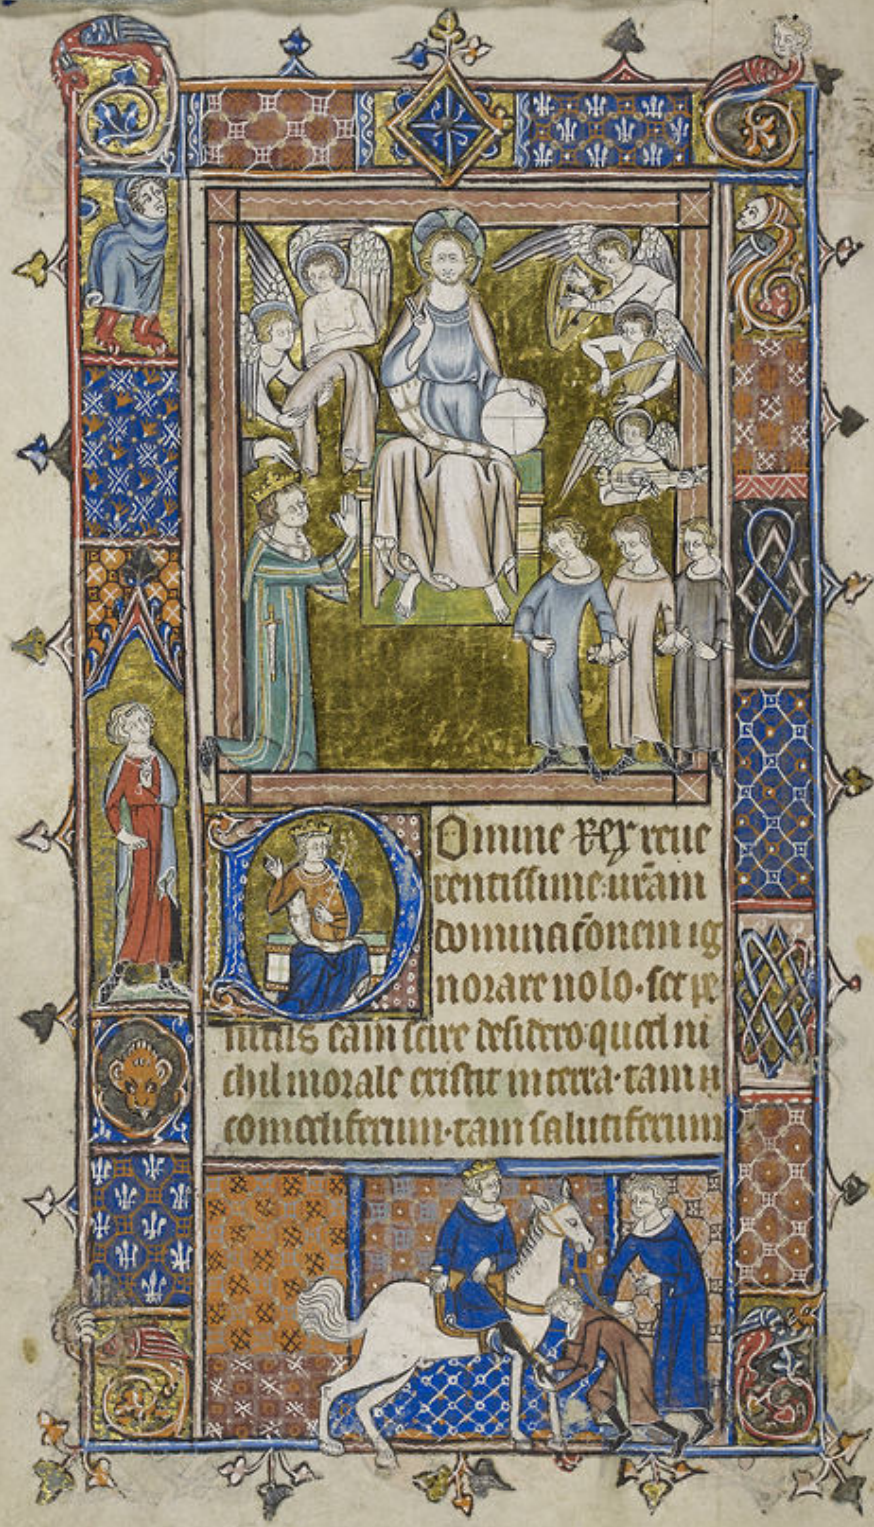 Domine Rex reue
rentissime: urām
dominacōnem ig
norare nolo. set pe
nitus eam scire desidero: quod ni
chil morale existit in terra. tam
comodiferum. tam salutiferum